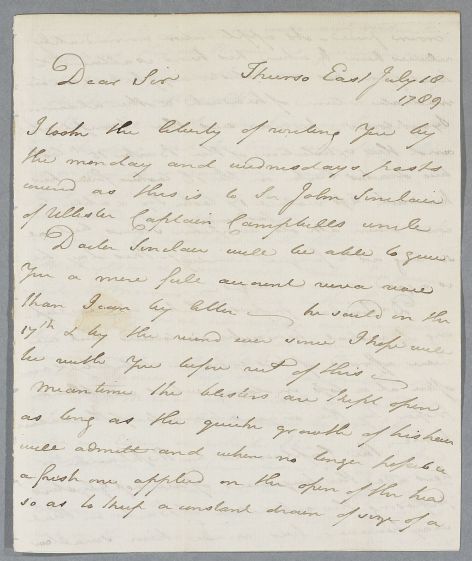 Dear Sir Thurso East July 18
1789
I took the liberty of writing You by
the monday and wednesdays posts
inend as this is to Sr John Sinclair
of Ulbster Captain Campbells uncle
Docter Sinclair will be able to give
You a more full account viva voce
than I can by letter — he saild on the
17th & by the wind ever since I hope will
be with You before rect of this —
Meantime the blisters are kept open
as long as the quick growth of his hair
will admitt and when no longer possible
a fresh one applied on the open of the head
so as to keep a constant drain of size of a